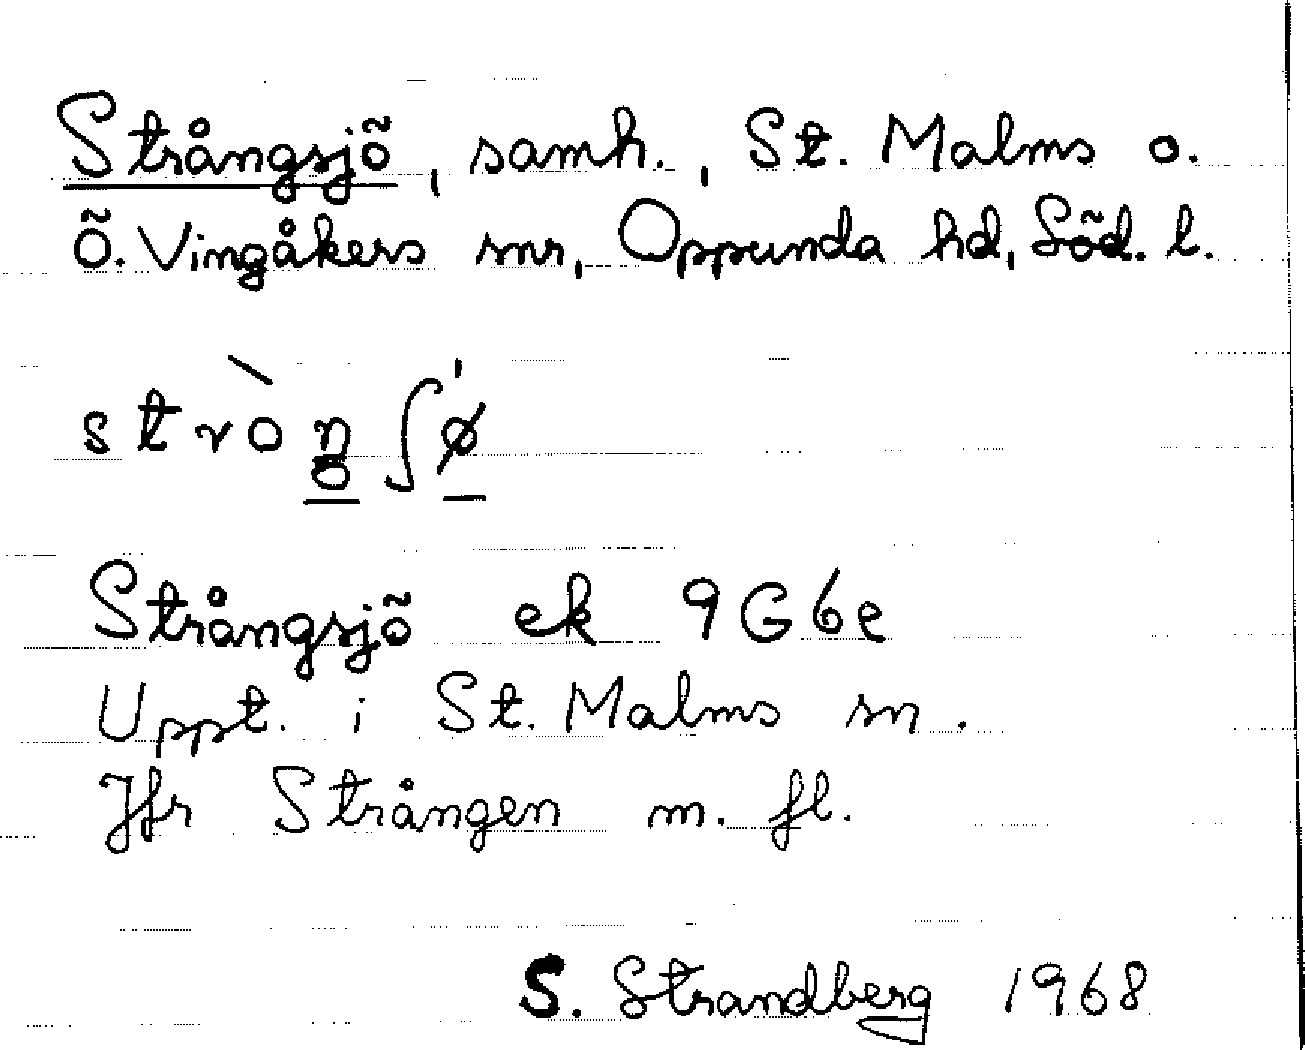 Strångsjö, samh., St. Malms o.
Ö. Vingåkers snr, Oppunda hd, Söd. l.
stròŋʃø̍
Strångsjö ek 9G6e
Uppt. i St. Malms sn.
Jfr Strången m. fl.
S. Strandberg 1968